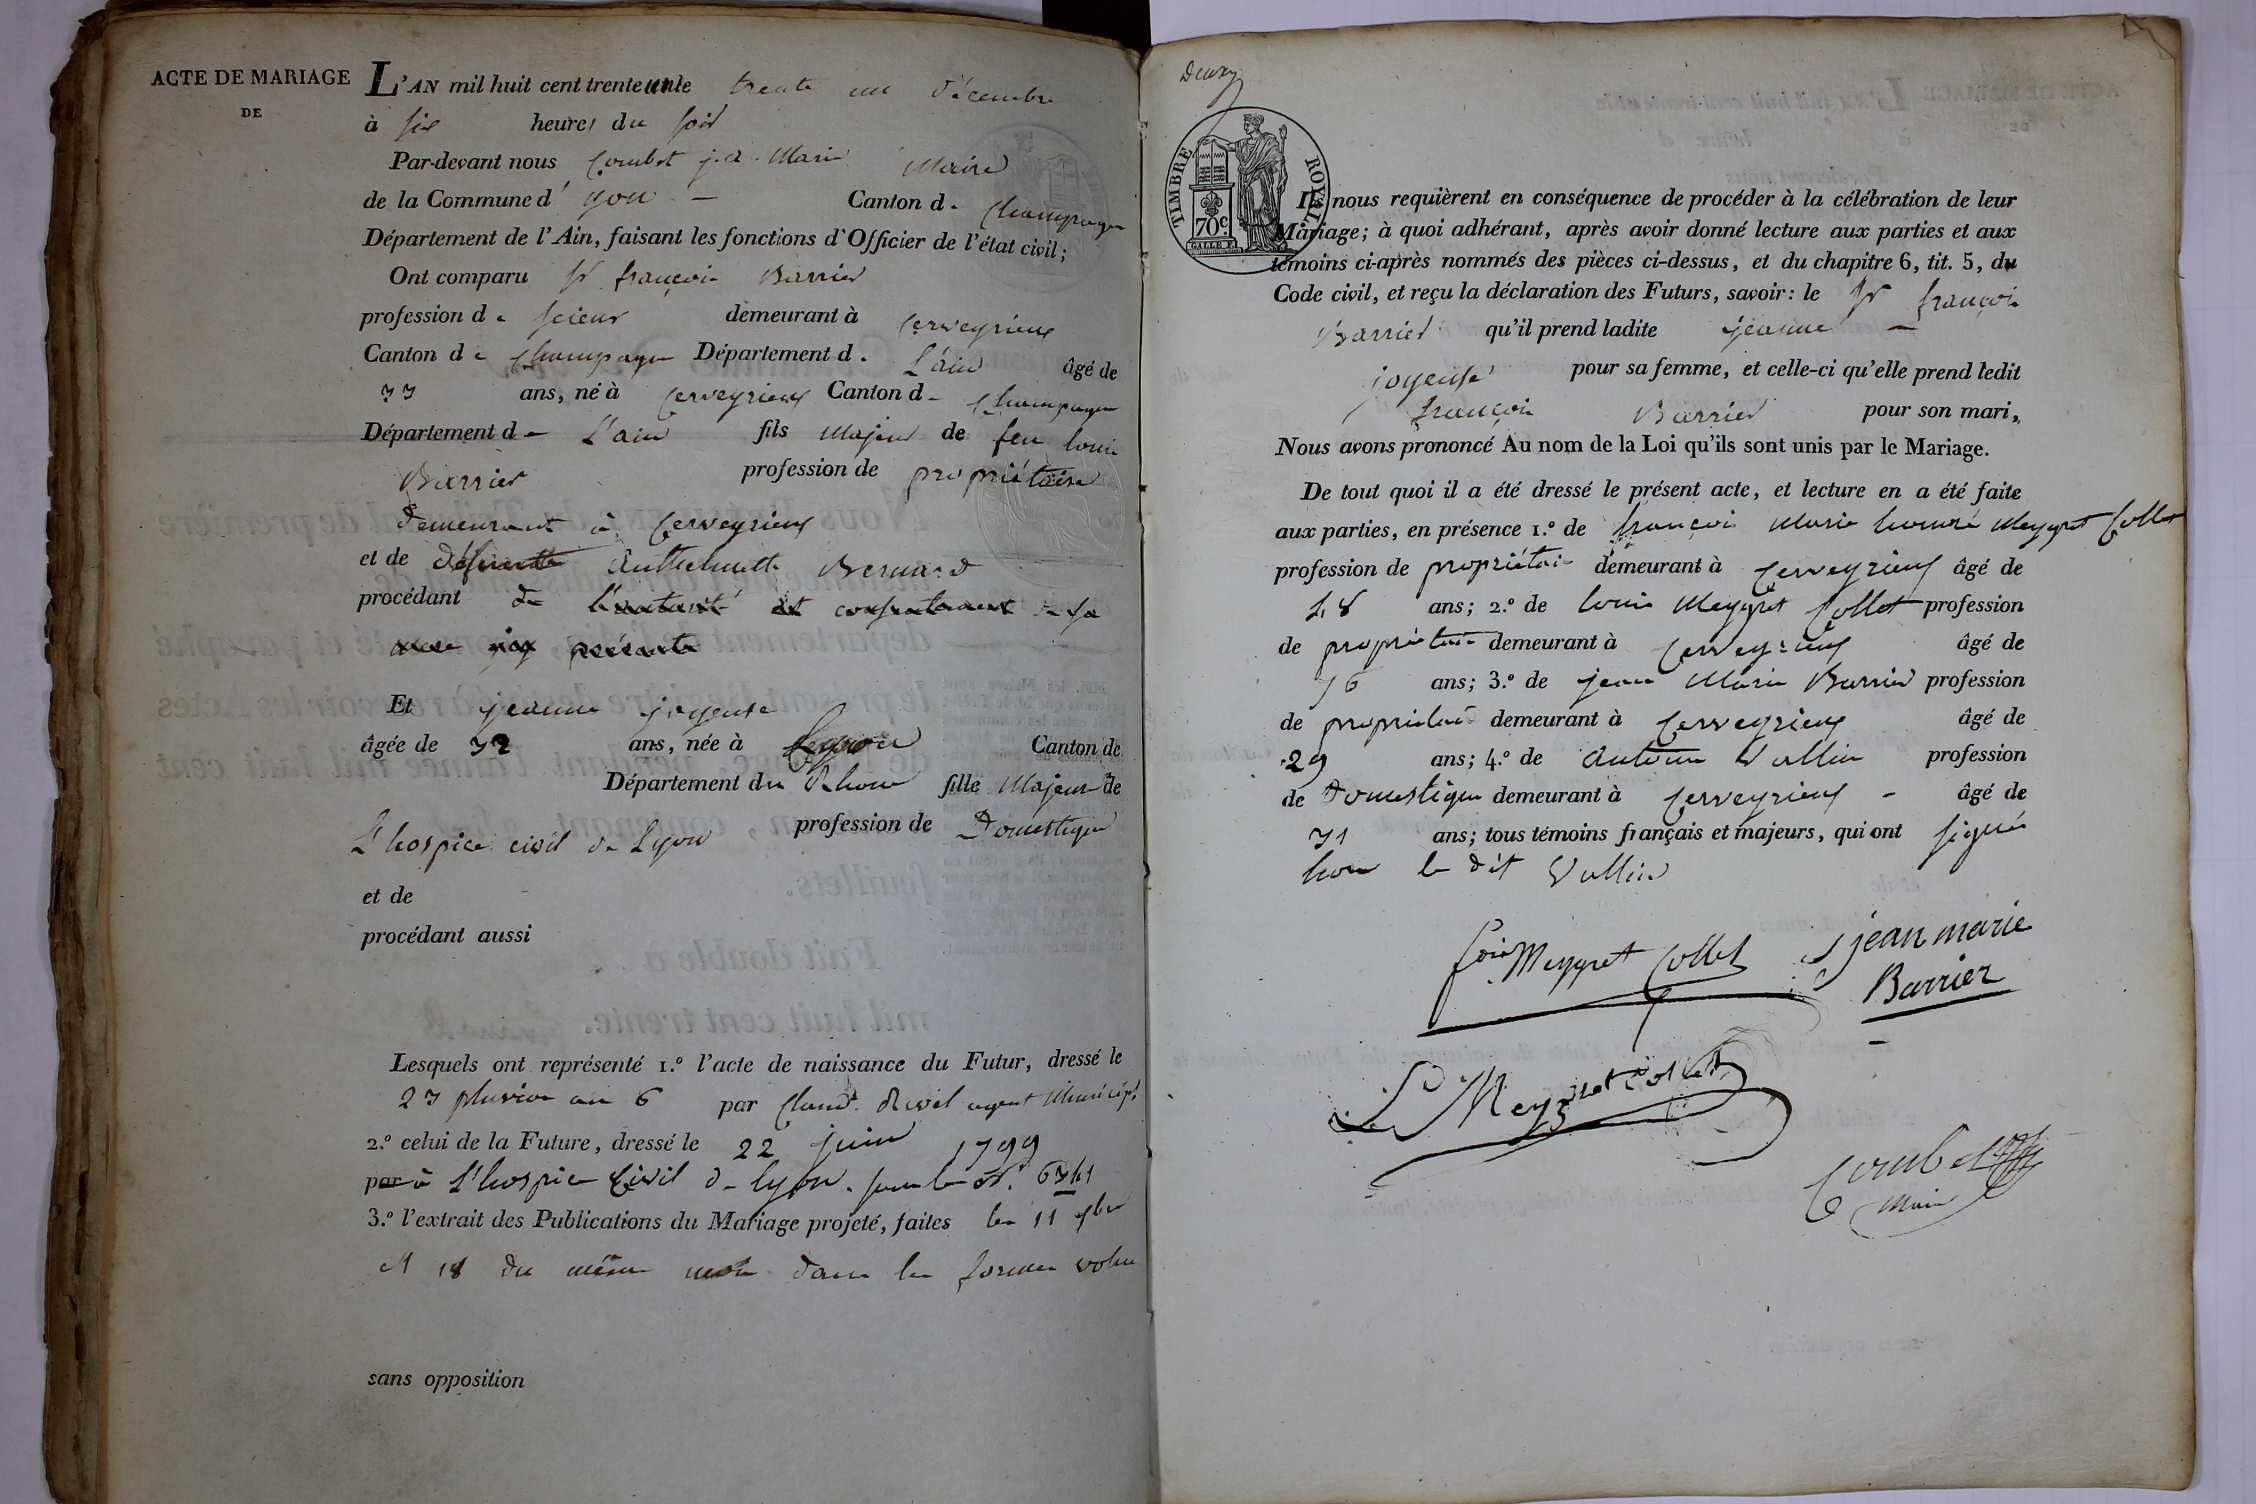 ACTE DE MARIAGE
DE
L'AN mil huit cent trente un le trente un décembre
à six heures du soir
Par-devant nous Combet j. a. Marie Maire
de la Commune d' yon - Canton d. Champagne
Département de l'Ain, faisant les fonctions d'Officier de l'état civil;
Ont comparu Sr françois Barrier
profession de scieur demeurant à Cerveyrieux
Canton de Champagne Département d. L'ain âgé de
33 ans, né à Cerveyrieux Canton de Champagne
Département de L'ain fils Majeur de feu louis
Barrier profession de propriétaire
demeurant à Cerveyrieux
et de défunte Anthelmette Bernard
procédant de
présente
Et jeanne joyeuse
âgée de 32 ans, née à Lyon Canton de
Département du Rhone fille Majeure de
L'hospice civil de Lyon profession de Domestique
et de
procédant aussi
Lesquels ont représenté 1.º l'acte de naissance du Futur, dressé le
23 pluviose an 6 par Claude agent Municipl
2.º celui de la Future, dressé le 22 juin 1799
par à L'hospice Civil de Lyon. sous le Nº. 6341
3.º l'extrait des Publications du Mariage projeté, faites les 11
et 18 du même mois dans les formes
sans opposition
TIMBRE ROYAL
70c.
Ils nous requièrent en conséquence de procéder à la célébration de leur
Mariage; à quoi adhérant, après avoir donné lecture aux parties et aux
témoins ci-après nommés des pièces ci-dessus, et du chapitre 6, tit. 5, du
Code civil, et reçu la déclaration des Futurs, savoir: le Sr françois
Barrier qu'il prend ladite jeanne -
joyeuse pour sa femme, et celle-ci qu'elle prend ledit
françois Barrier pour son mari,
Nous avons prononcé Au nom de la Loi qu'ils sont unis par le Mariage.
De tout quoi il a été dressé le présent acte, et lecture en a été faite
aux parties, en présence 1.º de françois Marie honoré Meygret Collet
profession de propriétaire demeurant à Cerveyrieux âgé de
48 ans; 2.º de louis Meygret Collet profession
de propriétaire demeurant à Cerveyrieux âgé de
36 ans; 3.º de jean Marie Barrier profession
de propriétaire demeurant à Cerveyrieux âgé de
29 ans; 4.º de Antoine Vullin profession
de Domestique demeurant à Cerveyrieux - âgé de
31 ans; tous témoins français et majeurs, qui ont signé
hors le dit Vullin
fois Meygret Collet
jean marie
Barrier
L Meygret Collet
Combet
Maire